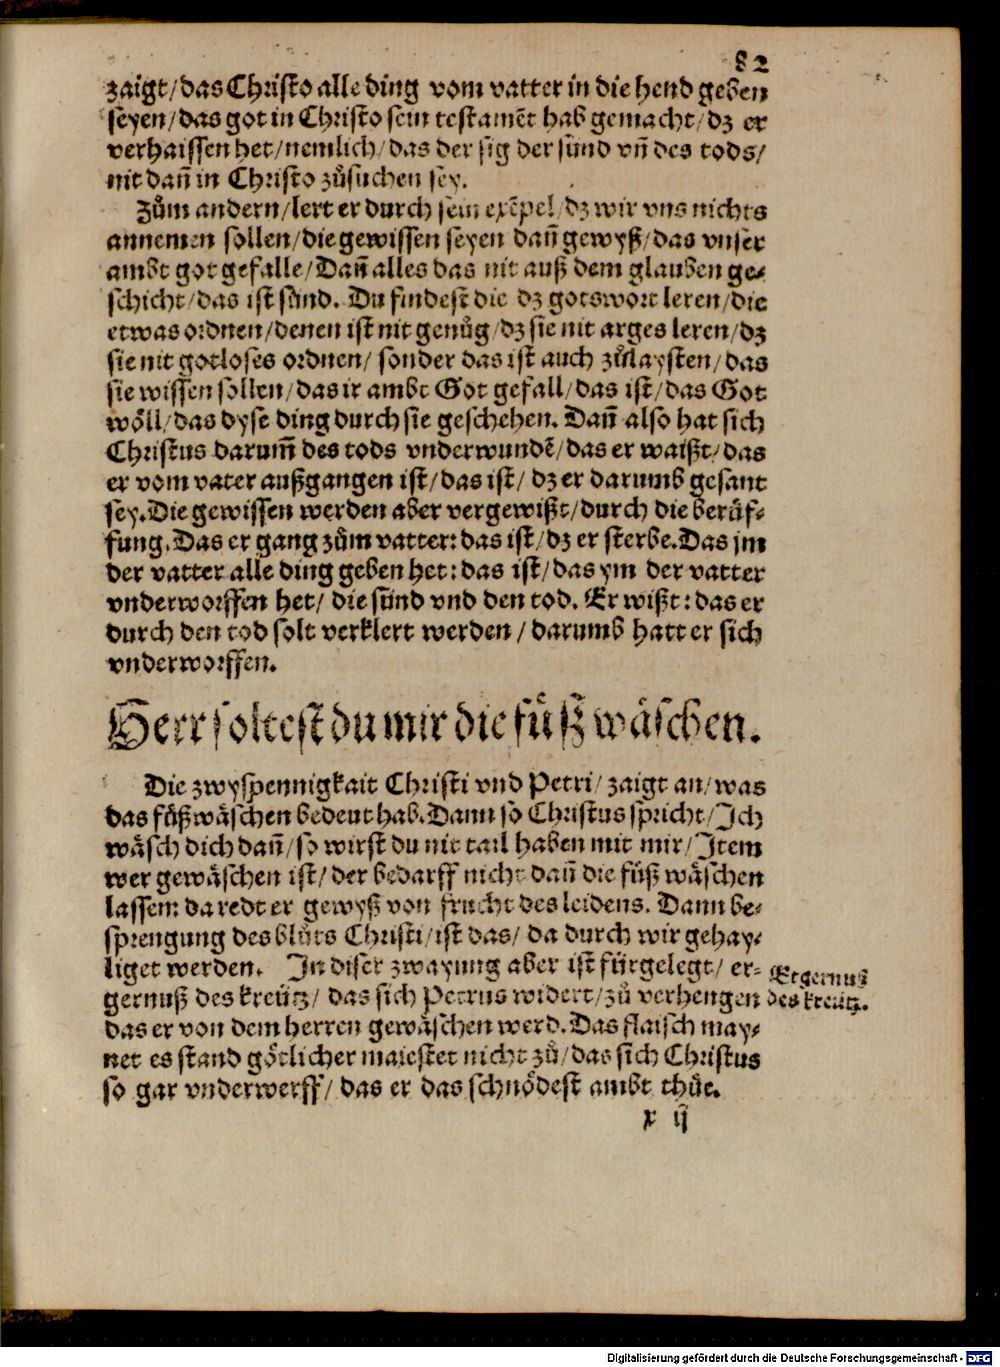 82
zaigt/das Christo alle ding vom vatter in die hend geben
seyen/das got in Christo sein testamēt hab gemacht/dz er
verhaissen het/nemlich/das der sig der sünd vn̄ des tods/
nit dan̄ in Christo zůsuchen sey.
Zům andern/lert er durch sein exēpel/dz wir vns nichts
annemen sollen/die gewissen seyen dan̄ gewyß/das vnser
ambt got gefalle/Dan̄ alles das nit auß dem glauben ge-
schicht/das ist sünd. Du findest die dz gotswort leren/die
etwas ordnen/denen ist nit genůg/dz sie nit arges leren/dz
sie nit gotloses ordnen/ sonder das ist auch zůlaysten/das
sie wissen sollen/das ir ambt Got gefall/das ist/das Got
wöll/das dyse ding durch sie geschehen. Dan̄ also hat sich
Christus darum̄ des tods vnderwundē/das er waißt/das
er vom vater außgangen ist/das ist/ dz er darumb gesant
sey. Die gewissen werden aber vergewißt/durch die berůf-
fung. Das er gang zům vatter: das ist/dz er sterbe. Das jm
der vatter alle ding geben het: das ist/das ym der vatter
vnderworffen het/ die sünd vnd den tod. Er wißt: das er
durch den tod solt verklert werden/darumb hatt er sich
vnderworffen.
Herr soltest du mir die fůß wäschen.
Die zwyspennigkait Christi vnd Petri/zaigt an/was
das fůßwäschen bedeut hab. Dann so Christus spricht/Ich
wäsch dich dan̄/so wirst du nit tail haben mit mir/Item
wer gewäschen ist/der bedarff nicht dan̄ die fůß wäschen
lassen: da redt er gewyß von frucht des leidens. Dann be-
sprengung des blůts Christi/ist das/ da durch wir gehay-
liget werden. In diser zwayung aber ist fürgelegt/ er-
gernuß des kreütz/ das sich Petrus widert/zů verhengen
das er von dem herren gewäschen werd. Das flaisch may-
net es stand götlicher maiestet nicht zů/das sich Christus
so gar vnderwerff/das er das schnödest ambt thůt.
Ergernuß
des kreütz.
x ij
Digitalisierung gefördert durch die Deutsche Forschungsgemeinschaft - DFG